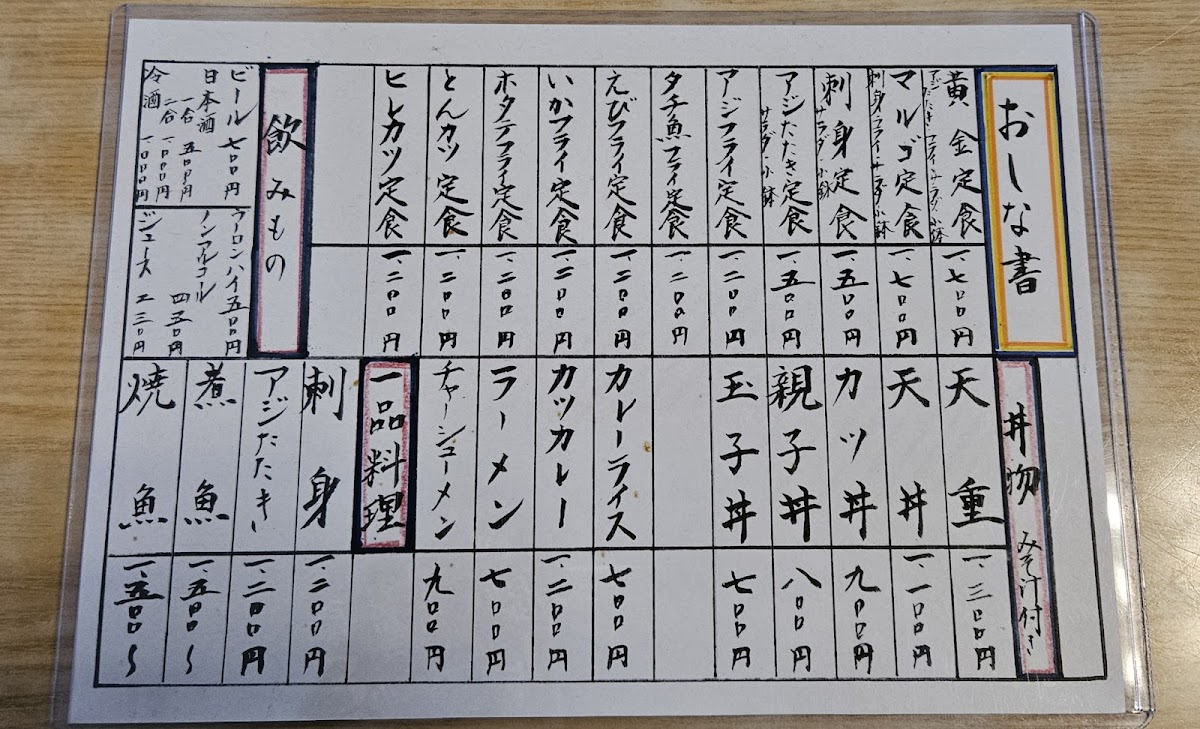 おしな書
黄金定食
アジたたき フライ サラダ 小鉢
一.七〇〇円
マルゴ定食
刺身 フライ サラダ 小鉢
一.七〇〇円
刺身定食
サラダ 小鉢
一.五〇〇円
アジたたき定食
サラダ 小鉢
一.五〇〇円
アジフライ定食
一.二〇〇円
タチ魚フライ定食
一.二〇〇円
えびフライ定食
一.二〇〇円
いかフライ定食
一.二〇〇円
ホタテフライ定食
一.二〇〇円
とんカツ定食
一.二〇〇円
ヒレカツ定食
一.二〇〇円
飲みもの
ビール 七〇〇円
日本酒
一合 五〇〇円
二合 一.〇〇〇円
冷酒 一.〇〇〇円
ウーロンハイ 五〇〇円
ノンアルコール 四五〇円
ジュース 二三〇円
丼物 みそ汁付き
天重
一.三〇〇円
天丼
一.一〇〇円
カツ丼
九〇〇円
親子丼
八〇〇円
玉子丼
七〇〇円
カレーライス
七〇〇円
カツカレー
一.二〇〇円
ラーメン
七〇〇円
チャーシューメン
九〇〇円
一品料理
刺身
一.二〇〇円
アジたたき
一.二〇〇円
煮魚
一.五〇〇〜
焼魚
一.五〇〇〜